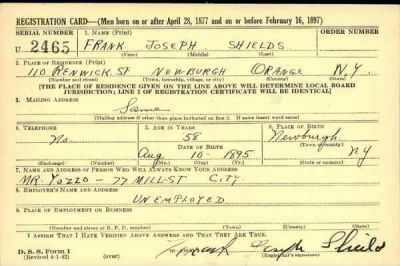 REGISTRATION CARD—(Men born on or after April 28, 1877 and on or before February 16, 1897)
SERIAL NUMBER 1. NAME (Print) ORDER NUMBER
U 2465 FRANK JOSEPH SHIELDS
(First) (Middle) (Last)
2. PLACE OF RESIDENCE (Print)
110 RENWICK ST NEWBURGH ORANGE N.Y.
(Number and street) (Town, township, village, or city) (County) (State)
[THE PLACE OF RESIDENCE GIVEN ON THE LINE ABOVE WILL DETERMINE LOCAL BOARD
JURISDICTION; LINE 2 OF REGISTRATION CERTIFICATE WILL BE IDENTICAL]
3. MAILING ADDRESS
Same
[Mailing address if other than place indicated on line 2. If same insert word same]
4. TELEPHONE 5. AGE IN YEARS 6. PLACE OF BIRTH
No 58 Newburgh
DATE OF BIRTH (Town or county)
Aug 10 - 1895 NY
(Exchange) (Number) (Mo.) (Day) (Yr.) (State or country)
7. NAME AND ADDRESS OF PERSON WHO WILL ALWAYS KNOW YOUR ADDRESS
MR YOZZO - 77 MILL-ST CITY.
8. EMPLOYER'S NAME AND ADDRESS
UNEMPLOYED
9. PLACE OF EMPLOYMENT OR BUSINESS
(Number and street or R. F. D. number) (Town) (County) (State)
I AFFIRM THAT I HAVE VERIFIED ABOVE ANSWERS AND THAT THEY ARE TRUE.
D. S. S. Form 1
(Revised 4-1-42) (over) Frank Joseph Shields